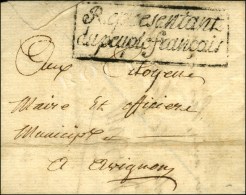 Représentant
du peuple français
Aux Citoyens
Maire Et officiers
Municip
a avignon